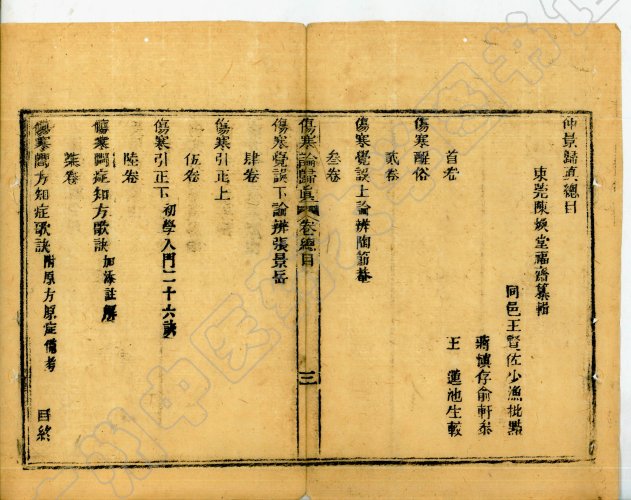 仲景歸真總目
東莞陳煥堂福齋纂輯
同邑王賢佐少漁批點
蔣慎存俞軒叅
王蓮池生較
首卷
傷寒醒俗
貳卷
傷寒覺誤上論辨陶節菴
叁卷
傷寒論歸真 卷總目 三
傷寒覺誤下論辨張景岳
肆卷
傷寒引正上
伍卷
傷寒引正下 初學入門二十六訣
陸卷
傷寒問症知方歌訣 加添註解
柒卷
傷寒問方知症歌訣 附原方原症備考 目終